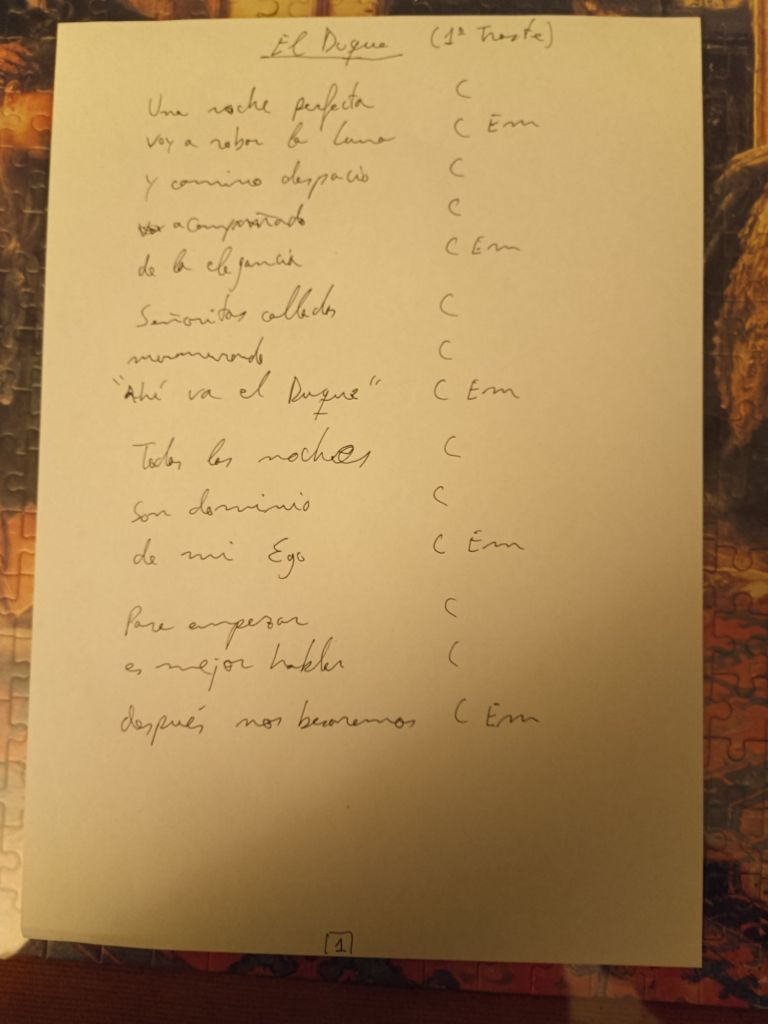 El Duque (1ª Traste)
Una noche perfecta C
voy a robar la Luna C Em
y camino despacio C
acompañado C
de la elegancia C Em
Señoritas calladas C
murmurando C
"Ahí va el Duque" C Em
Todas las noches C
son dominio C
de mi Ego C Em
Para empezar C
es mejor hablar C
después nos besaremos C Em
1